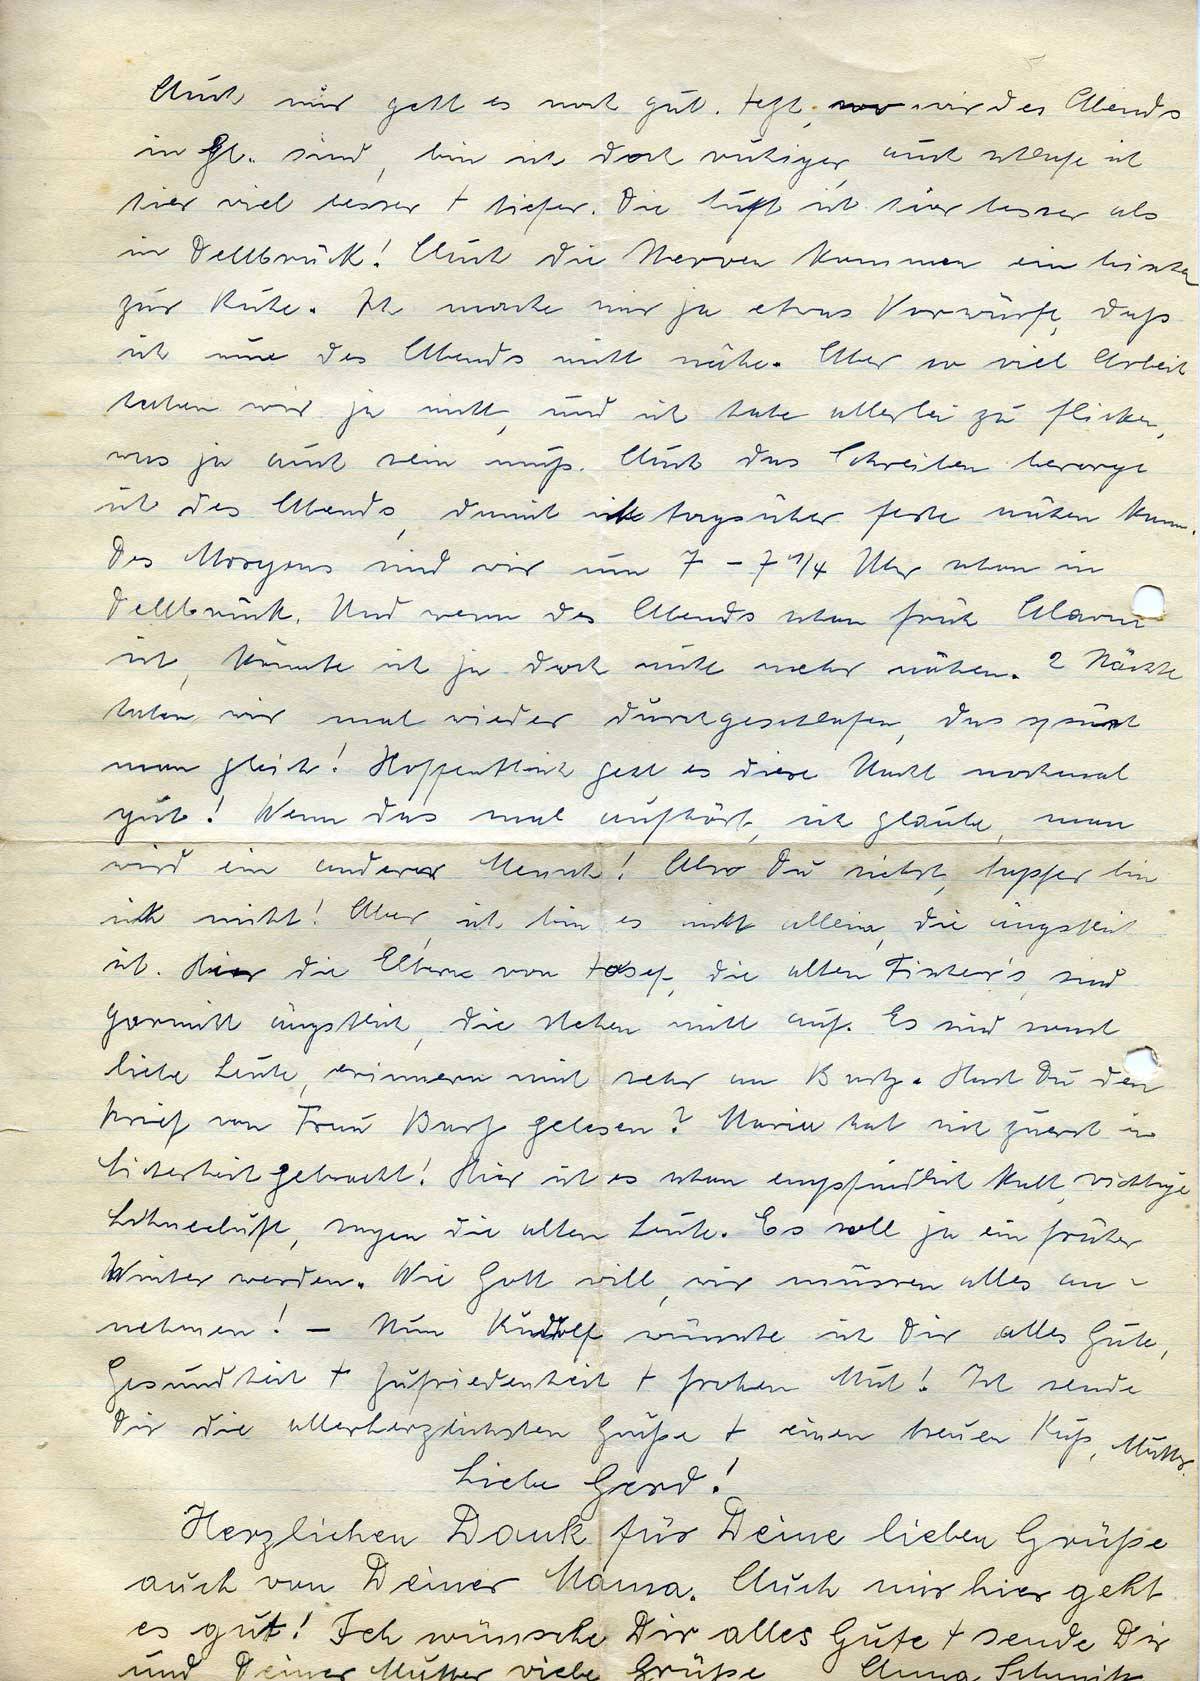 Auch mir geht es noch gut. Jetzt, wo wir des Abends
in Gl. sind, bin ich doch ruhiger, auch schlafe ich
hier viel besser + tiefer. Die Luft ist hier besser als
in Dellbrück! Auch die Nerven kommen ein bischen
zur Ruhe. Ich mache mir ja etwas Vorwürfe, daß
ich nun des Abends nicht nähe. Aber so viel Arbeit
haben wir ja nicht, und ich habe allerlei zu flicken,
was ja auch sein muß. Auch das Schreiben besorge
ich des Abends, damit ich tagsüber feste nähen kann.
Des Morgens sind wir um 7 - 7 1/4 Uhr schon in
Dellbrück. Und wenn des Abends schon früh Alarm
ist, könnte ich ja doch nicht mehr nähen. 2 Nächte
haben wir mal wieder durchgeschlafen, das spürt
man gleich! Hoffentlich geht es diese Nacht nochmal
gut! Wenn das mal aufhört, ich glaube, man
wird ein anderer Mensch! Also Du siehst, tapfer bin
ich nicht! Aber, ich bin es nicht allein, die ängstlich
ist. Hier die Eltern von Josef, die alten Fischer's, sind
garnicht ängstlich, die stehen nicht auf. Es sind sonst
liebe Leute, erinnern mich sehr an Hast Du den
Brief von Frau gelesen? Maria hat sich zuerst in
Sicherheit gebracht! Hier ist es schon empfindlich kalt, richtige
Schneeluft, sagen die alten Leute. Es soll ja ein früher
Winter werden. Wie Gott will, wir müssen alles an-
nehmen! - Nun Rudolf wünsche ich Dir alles Gute,
Gesundheit + Zufriedenheit + frohen Mut! Ich sende
Dir die allerherzlichsten Grüße + einen treuen Kuß, Mutter.
Liebe Gerd!
Herzlichen Dank für Deine lieben Grüße
auch von Deiner Mama. Auch mir hier geht
es gut! Ich wünsche Dir alles Gute + sende Dir
und Deiner Mutter viele Grüße Anna Schmitz